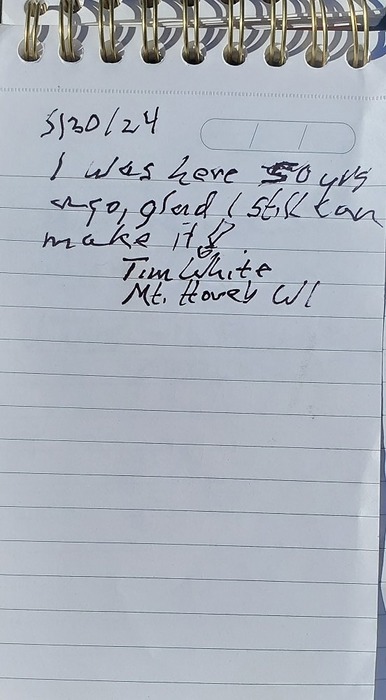 5/30/24
I was here 50 yrs
ago, glad I still can
make it!
Tim White
Mt. Horeb WI